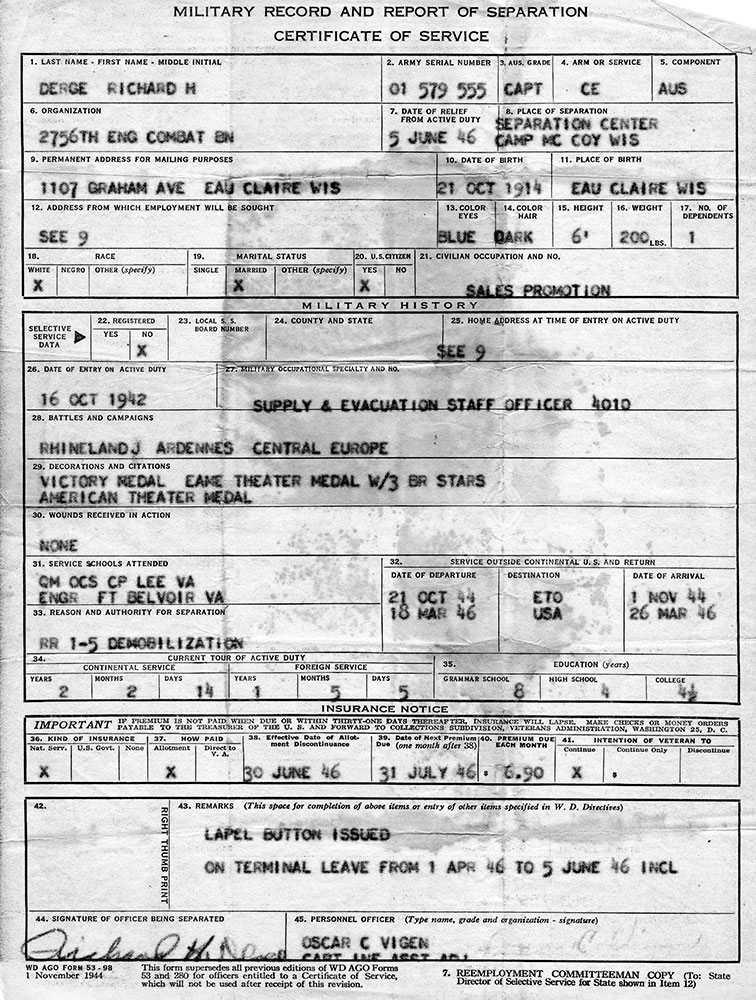 MILITARY RECORD AND REPORT OF SEPARATION
CERTIFICATE OF SERVICE
1. LAST NAME - FIRST NAME - MIDDLE INITIAL
DERGE RICHARD H
2. ARMY SERIAL NUMBER
01 579 555
3. AUS. GRADE
CAPT
4. ARM OR SERVICE
CE
5. COMPONENT
AUS
6. ORGANIZATION
2756TH ENG COMBAT BN
7. DATE OF RELIEF
FROM ACTIVE DUTY
5 JUNE 46
8. PLACE OF SEPARATION
SEPARATION CENTER
CAMP MC COY WIS
9. PERMANENT ADDRESS FOR MAILING PURPOSES
1107 GRAHAM AVE EAU CLAIRE WIS
10. DATE OF BIRTH
21 OCT 1914
11. PLACE OF BIRTH
EAU CLAIRE WIS
12. ADDRESS FROM WHICH EMPLOYMENT WILL BE SOUGHT
SEE 9
13. COLOR
EYES
BLUE
14. COLOR
HAIR
DARK
15. HEIGHT
6'
16. WEIGHT
200 LBS.
17. NO. OF
DEPENDENTS
1
18. RACE
WHITE NEGRO OTHER (specify)
X
19. MARITAL STATUS
SINGLE MARRIED OTHER (specify)
X
20. U.S. CITIZEN
YES NO
X
21. CIVILIAN OCCUPATION AND NO.
SALES PROMOTION
MILITARY HISTORY
SELECTIVE
SERVICE
DATA
22. REGISTERED
YES NO
X
23. LOCAL S. S.
BOARD NUMBER
24. COUNTY AND STATE
25. HOME ADDRESS AT TIME OF ENTRY ON ACTIVE DUTY
SEE 9
26. DATE OF ENTRY ON ACTIVE DUTY
16 OCT 1942
27. MILITARY OCCUPATIONAL SPECIALTY AND NO.
SUPPLY & EVACUATION STAFF OFFICER 4010
28. BATTLES AND CAMPAIGNS
RHINELANDJ ARDENNES CENTRAL EUROPE
29. DECORATIONS AND CITATIONS
VICTORY MEDAL EAME THEATER MEDAL W/3 BR STARS
AMERICAN THEATER MEDAL
30. WOUNDS RECEIVED IN ACTION
NONE
31. SERVICE SCHOOLS ATTENDED
QM OCS CP LEE VA
ENGR FT BELVOIR VA
32. SERVICE OUTSIDE CONTINENTAL U. S. AND RETURN
DATE OF DEPARTURE DESTINATION DATE OF ARRIVAL
21 OCT 44 ETO 1 NOV 44
18 MAR 46 USA 26 MAR 46
33. REASON AND AUTHORITY FOR SEPARATION
RR 1-5 DEMOBILIZATION
34. CURRENT TOUR OF ACTIVE DUTY
CONTINENTAL SERVICE FOREIGN SERVICE
YEARS MONTHS DAYS YEARS MONTHS DAYS
2 2 14 1 5 5
35. EDUCATION (years)
GRAMMAR SCHOOL HIGH SCHOOL COLLEGE
8 4 4½
INSURANCE NOTICE
IMPORTANT IF PREMIUM IS NOT PAID WHEN DUE OR WITHIN THIRTY-ONE DAYS THEREAFTER, INSURANCE WILL LAPSE. MAKE CHECKS OR MONEY ORDERS
PAYABLE TO THE TREASURER OF THE U. S. AND FORWARD TO COLLECTIONS SUBDIVISION, VETERANS ADMINISTRATION, WASHINGTON 25, D. C.
36. KIND OF INSURANCE
Nat. Serv. U.S. Govt. None
X
37. HOW PAID
Allotment Direct to
V. A.
X
38. Effective Date of Allot-
ment Discontinuance
30 JUNE 46
39. Date of Next Premium
Due (one month after 38)
31 JULY 46
40. PREMIUM DUE
EACH MONTH
$ 6.90
41. INTENTION OF VETERAN TO
Continue Continue Only Discontinue
X $
42.
RIGHT THUMB PRINT
43. REMARKS (This space for completion of above items or entry of other items specified in W. D. Directives)
LAPEL BUTTON ISSUED
ON TERMINAL LEAVE FROM 1 APR 46 TO 5 JUNE 46 INCL
44. SIGNATURE OF OFFICER BEING SEPARATED
Richard H. Derge
45. PERSONNEL OFFICER (Type name, grade and organization - signature)
OSCAR C VIGEN
CAPT INF ASST ADJ
WD AGO FORM 53-98
1 November 1944
This form supersedes all previous editions of WD AGO Forms
53 and 280 for officers entitled to a Certificate of Service,
which will not be used after receipt of this revision.
7. REEMPLOYMENT COMMITTEEMAN COPY (To: State
Director of Selective Service for State shown in Item 12)